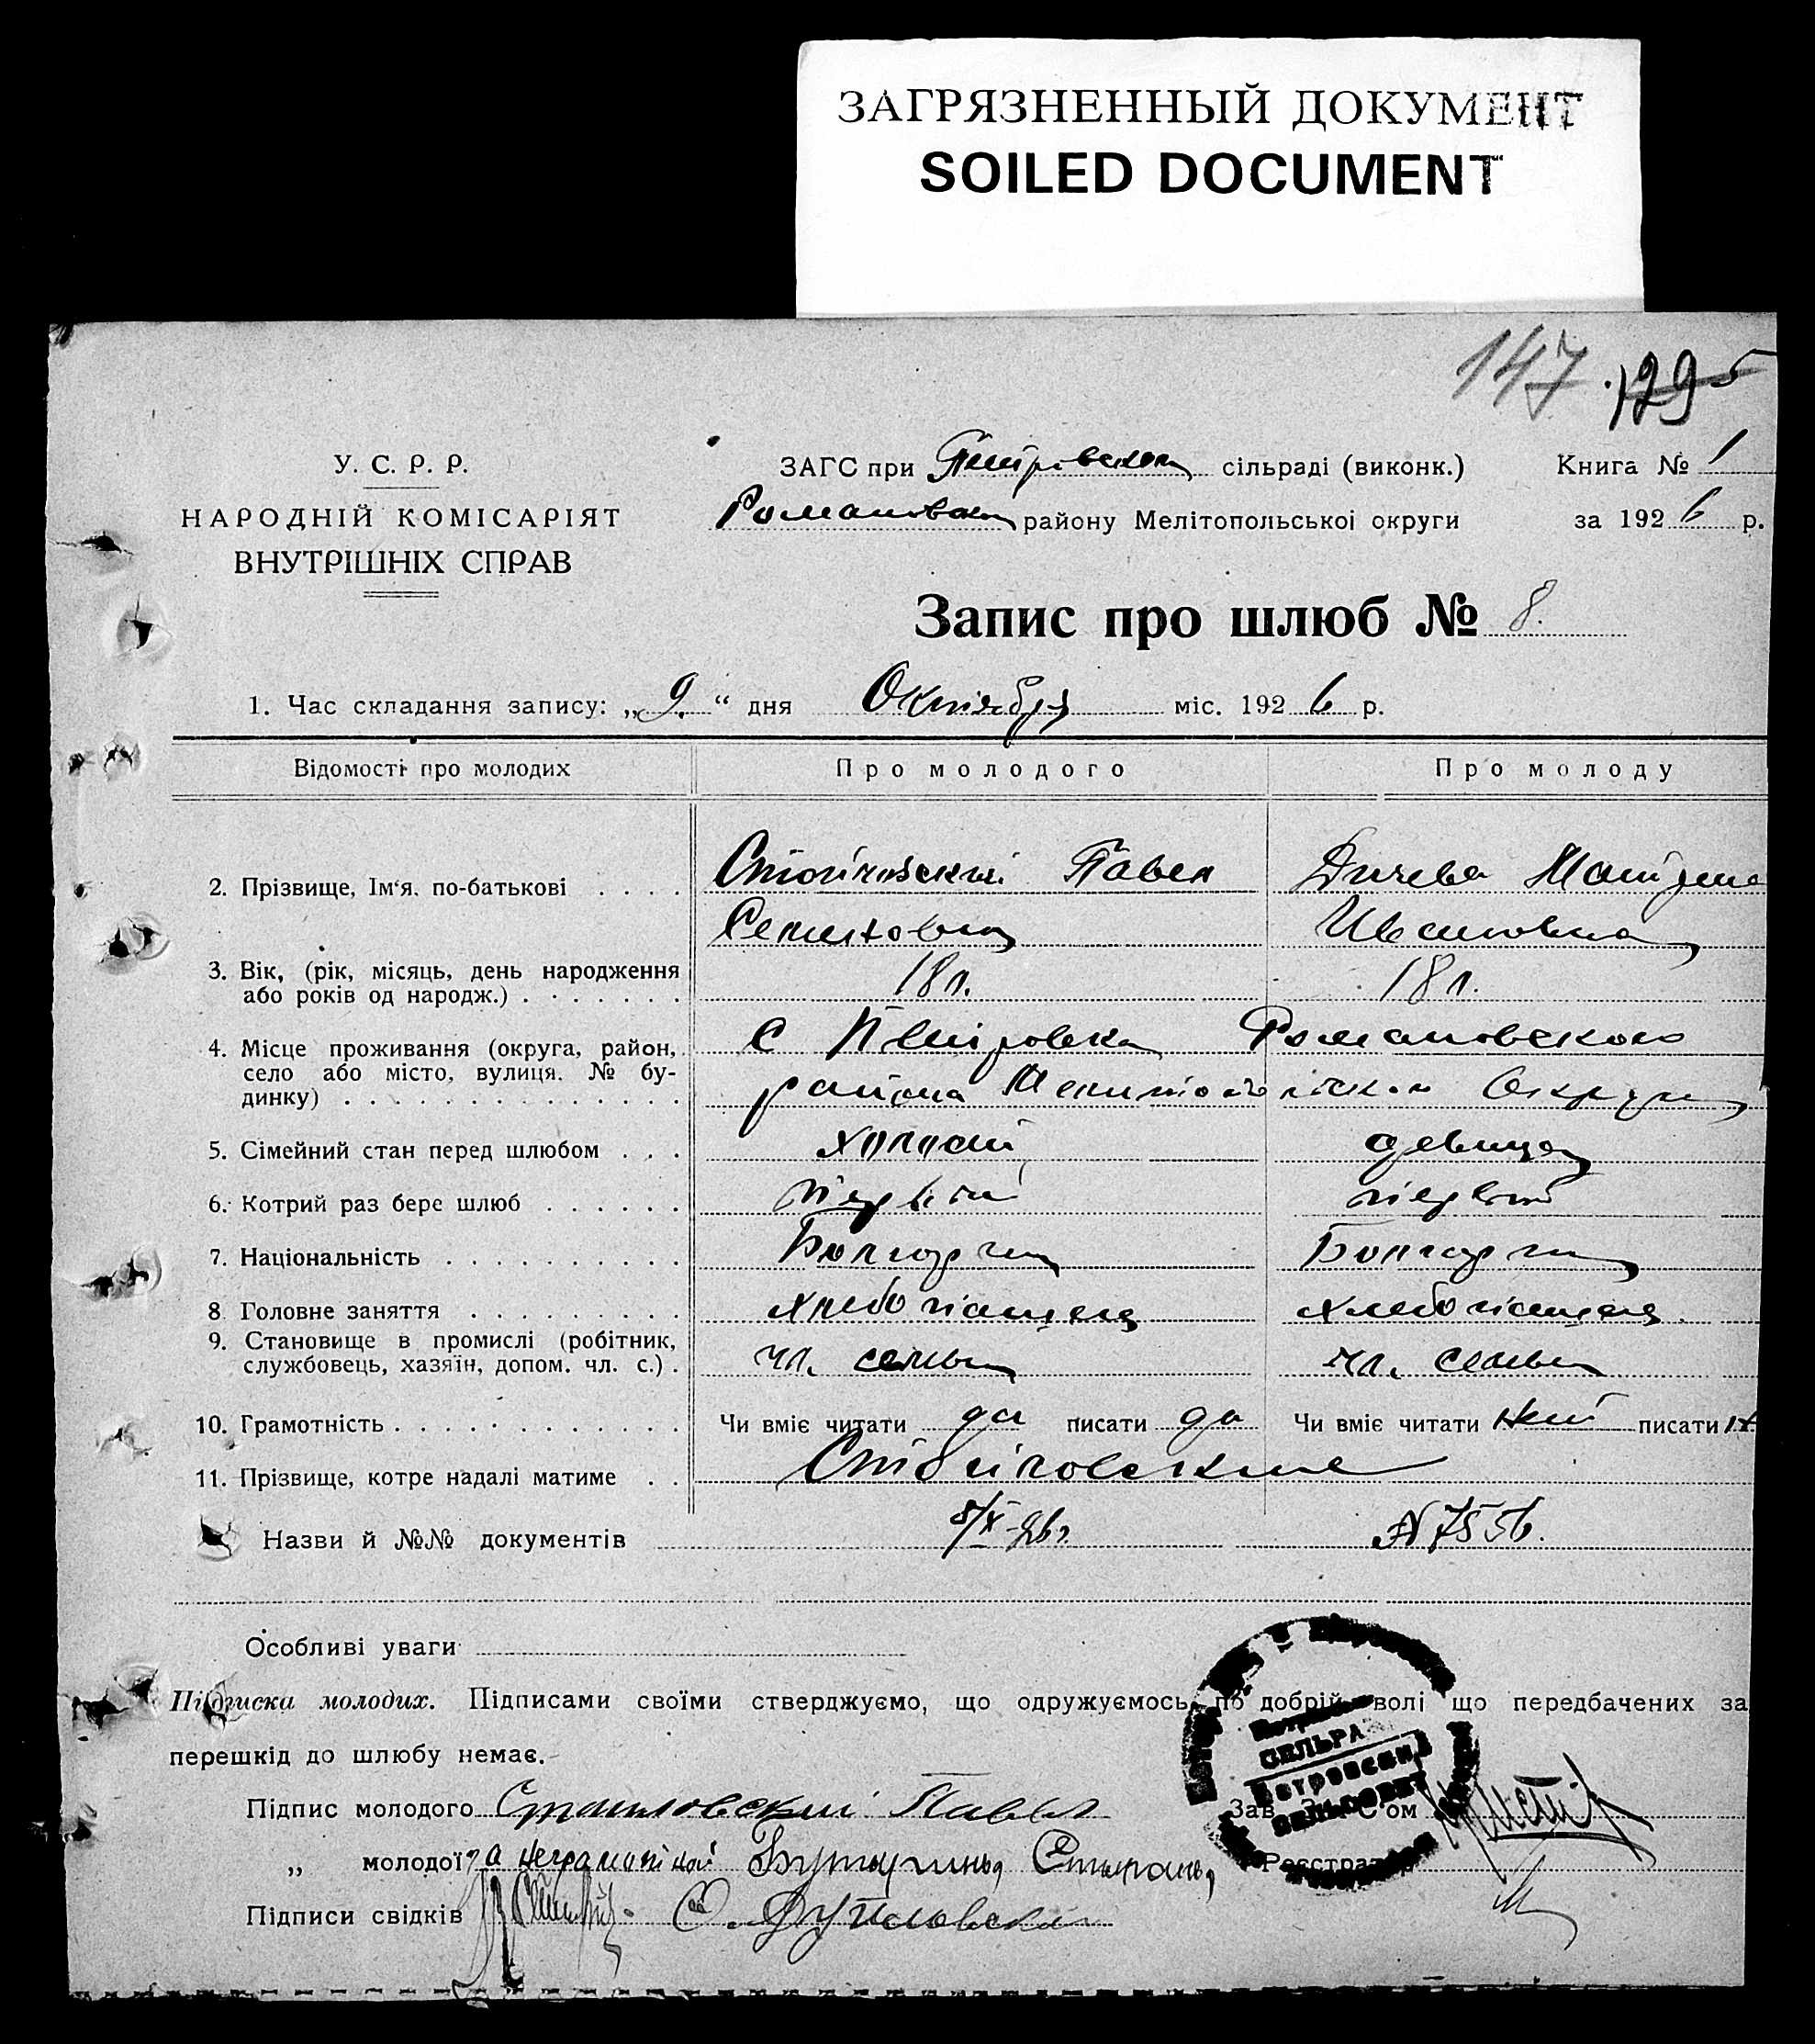 ЗАГРЯЗНЕННЫЙ ДОКУМЕНТ
SOILED DOCUMENT
147 1295
У. С. Р. Р.
НАРОДНІЙ КОМІСАРІЯТ
ВНУТРІШНІХ СПРАВ
ЗАГС при Петровском сільраді (виконк.) Книга № 1
Романовском району Мелітопольської округи за 1926 р.
Запис про шлюб № 8.
1. Час складання запису: „9.“ дня Октября міс. 1926 р.
Відомості про молодих Про молодого Про молоду
2. Прізвище, Ім'я, по-батькові . . . . Стойновский Павел Дичева
Семенович Ивановна
3. Вік, (рік, місяць, день народження
або років од народж.) . . . . . . . 18 л. 18 л.
4. Місце проживання (округа, район,
село або місто, вулиця, № бу-
динку) . . . . . . . . . . . . . . .
С Петровка Романовского
района Мелитопольской Округи
5. Сімейний стан перед шлюбом . . . холост девица
6. Котрий раз бере шлюб . . . . . . первый первый
7. Національність . . . . . . . . . . Болгары Болгары
8. Головне заняття . . . . . . . . . хлебопашец хлебопашец
9. Становище в промислі (робітник,
службовець, хазяїн, допом. чл. с.) . чл. семьи чл. семьи
10. Грамотність . . . . . . . . . . . . Чи вміє читати да писати да Чи вміє читати нет писати
11. Прізвище, котре надалі матиме . . Стойновские
Назви й №№ документів 8/X-26г. № 7556.
Особливі уваги
Підписка молодих. Підписами своїми стверджуємо, що одружуємось по добрій волі що передбачених за
перешкід до шлюбу немає.
Підпис молодого Стаиновский Павел Зав. ЗаГС'ом
„ молодої за неграмотной Степан Реєстратор
Підписи свідків
СЕЛЬРАДА
Петровский
СЕЛЬСОВЕТ